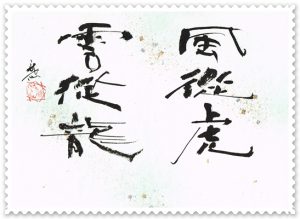 風從虎
雲從龍